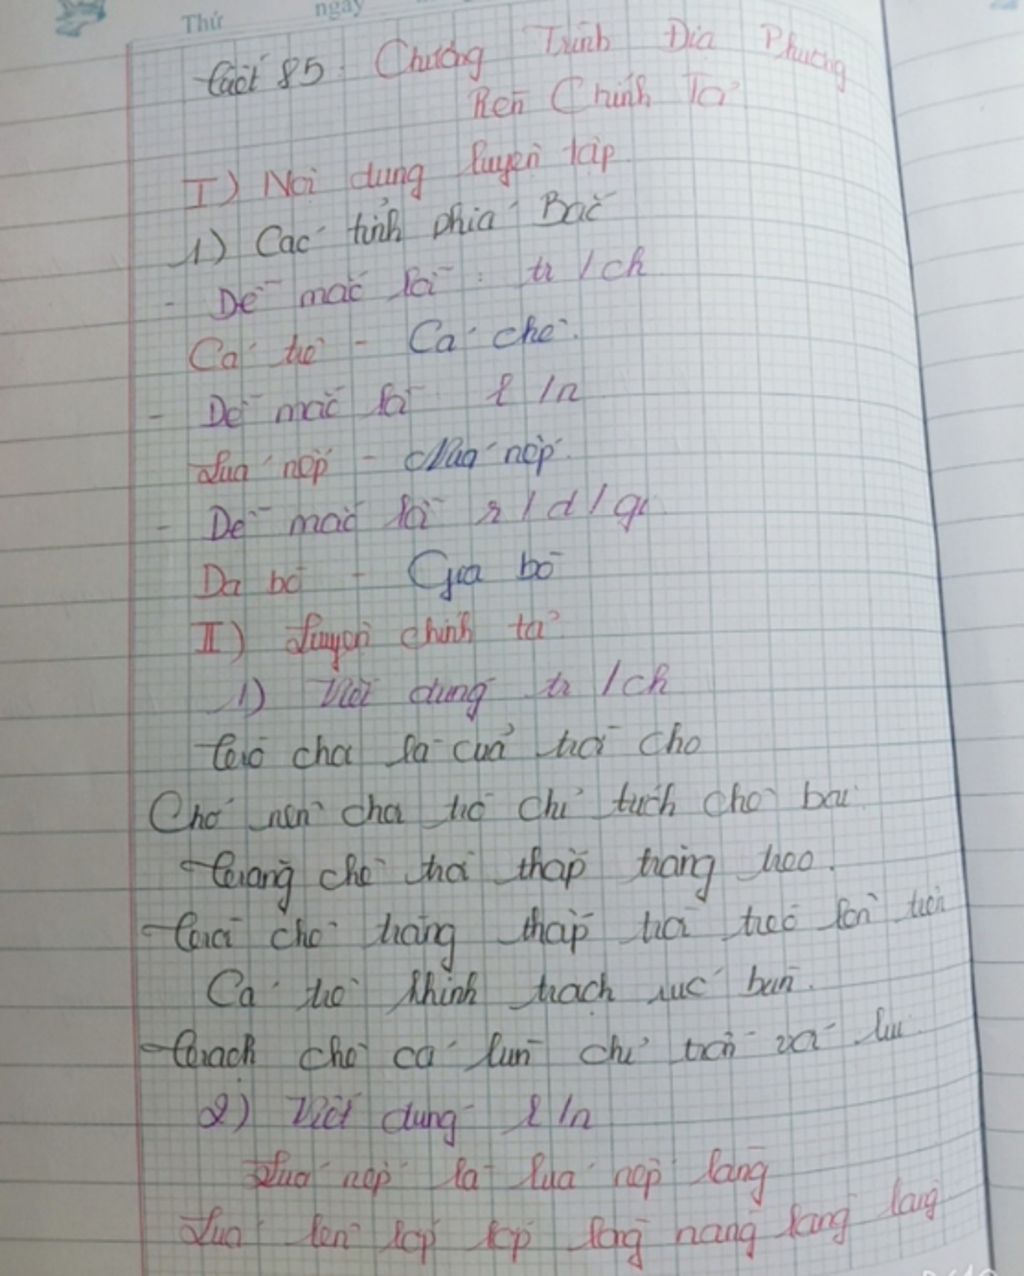 Thứ ngày
Tiết 85: Chương Trình Địa Phương
Rèn Chính Tả
I) Nội dung luyện tập
1) Các tỉnh phía Bắc
- Dễ mắc lỗi: tr/ch
Cá trê - Cá chê.
- Dễ mắc lỗi l/n
Lúa nếp - Núa nếp.
- Dễ mắc lỗi r/d/gi
Da bò - Gia bò
II) Luyện chính tả
1) Viết đúng tr/ch
Trò chơi là của trời cho
Chớ nên chơi trò chỉ trích chê bai.
Trăng chê trời thấp trăng treo.
Trời chê trăng thấp trời trèo lên trên
Cá trê khinh trạch rúc bùn.
Trạch chê cá lùn chỉ trốn và lủi.
2) Viết đúng l/n
Lúa nếp là lúa nếp làng
Lúa lên lớp lớp lòng nàng lâng lâng